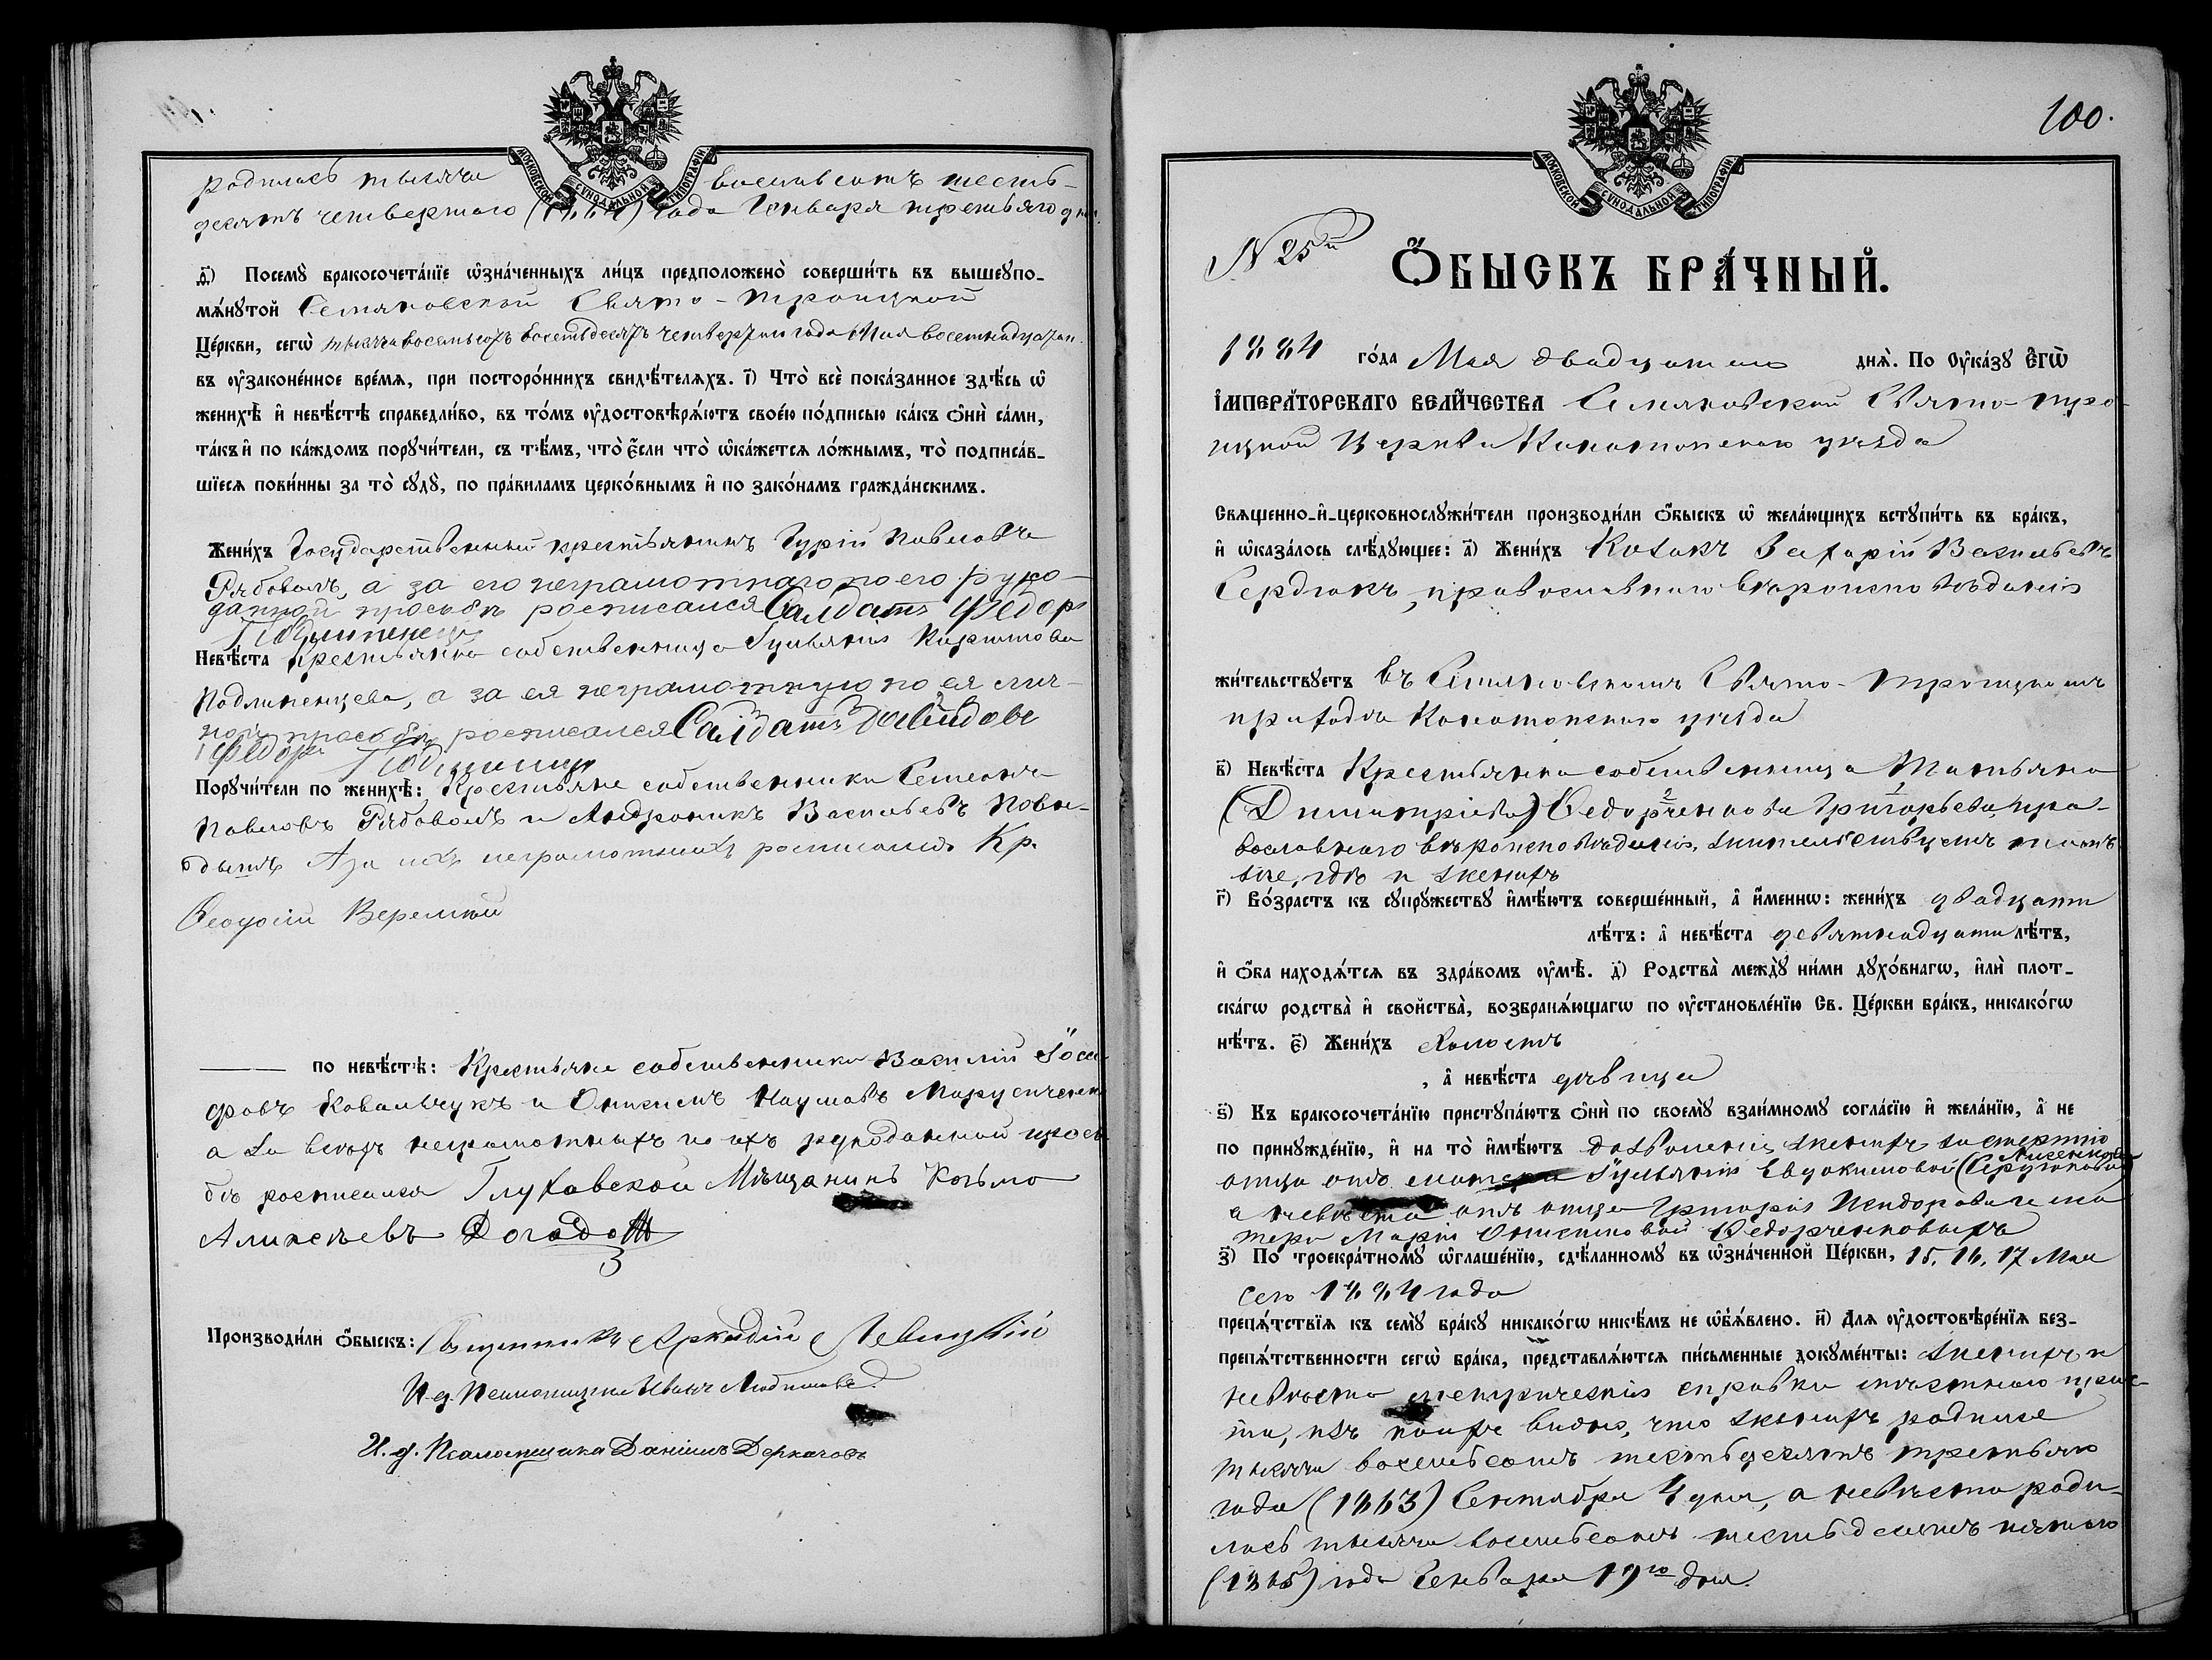 МОСКОВСКОЙ СѴНОДАЛЬНОЙ ТИПОГРАФІИ
родилась тысяча восемьсотъ шесть-
десятъ четвертаго (1864) года Генваря третьяго дня.
д҃і) Посемꙋ̀ бракосочета́нїе ѡ҆зна́ченныхъ ли́цъ предположено̀ соверши́ть въ вышеꙋпо-
мѧ́нꙋтой Семяновской Свято-Троицкой
Це́ркви, сегѡ̀ тысяча восемьсотъ восемьдесятъ четвертаго года Мая восемнадцатаго
въ ᲂу҆законе́нное вре́мѧ, при посторо́ннихъ свидѣ́телѧхъ. і҃) Что̀ всѐ пока́занное здѣ́сь ѡ҆
женихѣ̀ и҆ невѣ́стѣ справедли́во, въ то́мъ ᲂу҆достовѣрѧ́ютъ свое́ю по́дписью ка́къ ѻ҆нѝ са́ми,
та́къ и҆ по ка́ждомъ порꙋчи́тели, съ тѣ́мъ, что̀ є҆́сли что̀ ѡ҆ка́жетсѧ ло́жнымъ, то̀ подписа́в-
шїесѧ пови́нны за то̀ сꙋдꙋ̀, по пра́виламъ церко́внымъ и҆ по зако́намъ гражда́нскимъ.
Жени́хъ Государственный крестьянинъ Гурій Павловъ
Рябоволъ, а за его неграмотнаго по его руко-
данной просьбѣ росписался Салдатъ Федоръ
Невѣ́ста Крестьянка собственница Гульянія Кириллова
Подлипенцева, а за ея неграмотную по ея лич-
ной просьбѣ росписался Салдатъ Давидовъ
Федоръ
Порꙋчи́тели по женихѣ̀: Крестьяне собственники Семенъ
Павловъ Рябоволъ и Андроникъ Васильевъ
А за ихъ неграмотныхъ росписался Кр.
Феодосій Веремѣй
по невѣ́стѣ: Крестьяне собственники Василій Іоси-
фовъ Ковальчукъ и Онисимъ Наумовъ Марусиченко
а за всѣхъ неграмотныхъ по ихъ рукоданной прось-
бѣ росписался Глуховской Мѣщанинъ Козьма
Аликсѣевъ
Производи́ли ѻ҆́быскъ: Священникъ Аркадій Левицкій
И. д. Псаломщика Иванъ
И. д. Псаломщика Даніилъ Деркачовъ
100.
МОСКОВСКОЙ СѴНОДАЛЬНОЙ ТИПОГРАФІИ
N 25й
Ѻ҆́БЫСКЪ БРА́ЧНЫЙ.
1884 го́да Мая двадцатаго днѧ̀. По Оу҆ка́зꙋ Є҆гѡ̀
І҆мпера́торскагѡ Вели́чества Семяновской Свято-Тро-
ицкой Церкви Конотопскаго уѣзда
Свѧщенно-и҆-церковнослꙋжи́тели производи́ли ѻ҆́быскъ ѡ҆ жела́ющихъ встꙋпи́ть въ бра́къ,
и҆ ѡ҆каза́лось слѣ́дꙋющее: а҃) Жени́хъ Козакъ Захарій Васильевъ
Сердюкъ, православнаго вѣроисповѣданія
жи́тельствꙋетъ въ Семяновскомъ Свято-Троицкомъ
приходѣ Конотопскаго уѣзда
в҃) Невѣ́ста Крестьянка собственница Татьяна
(Димитріева) Федорченкова Григорьева, пра-
вославнаго вѣроисповѣданія, жительствуетъ тамъ
же, гдѣ и женихъ
г҃) Во́зрастъ къ сꙋпрꙋ́жествꙋ и҆мѣ́ютъ соверше́нный, а҆̀ и҆́меннѡ: жени́хъ двадцати
лѣ́тъ: а҆̀ невѣ́ста девятнадцати лѣ́тъ,
и҆ ѻ҆́ба находѧ́тсѧ въ здра́вомъ ᲂу҆мѣ̀. д҃) Родства̀ междꙋ̀ ни́ми дꙋхо́внагѡ, и҆лѝ плот-
ска́гѡ родства̀ и҆ свойства̀, возбранѧ́ющагѡ по ᲂу҆становле́нїю Св. Це́ркви бра́къ, никако́гѡ
нѣ́тъ. є҃) Жени́хъ холостъ
, а҆̀ невѣ́ста дѣвица
ѕ҃) Къ бракосочета́нїю пристꙋпа́ютъ ѻ҆нѝ по своемꙋ̀ взаи́мномꙋ согла́сїю и҆ жела́нїю, а҆̀ не
по принꙋжде́нїю, и҆ на то̀ и҆мѣ́ютъ дозволеніе женихъ за смертію
отца отъ матери Гульяніи Евдокимовой
а невѣста отъ отца Григорія Исидоровича и ма
тери Маріи Онисимовой Федорченковыхъ
з҃) По троекра́тномꙋ ѡ҆глаше́нїю, сдѣ́ланномꙋ въ ѡ҆зна́ченной Це́ркви, 15, 16, 17 Мая
сего 1884 года
препѧ́тствїѧ къ семꙋ̀ бра́кꙋ никако́гѡ никѣ́мъ не ѡ҆б̾ѧ́влено. и҃) Для ᲂу҆достовѣре́нїѧ без-
препѧ́тственности сегѡ̀ бра́ка, представлѧ́ютсѧ пи́сьменные докꙋме́нты: жениха и
невѣсты метрическія справки мѣстнаго при-
та, изъ коихъ видно, что женихъ родился
тысяча восемьсотъ шестьдесятъ третьяго
года (1863) Сентября 4 дня, а невѣста роди-
лась тысяча восемьсотъ шестьдесятъ пятаго
(1865) года Генваря 19го дня.